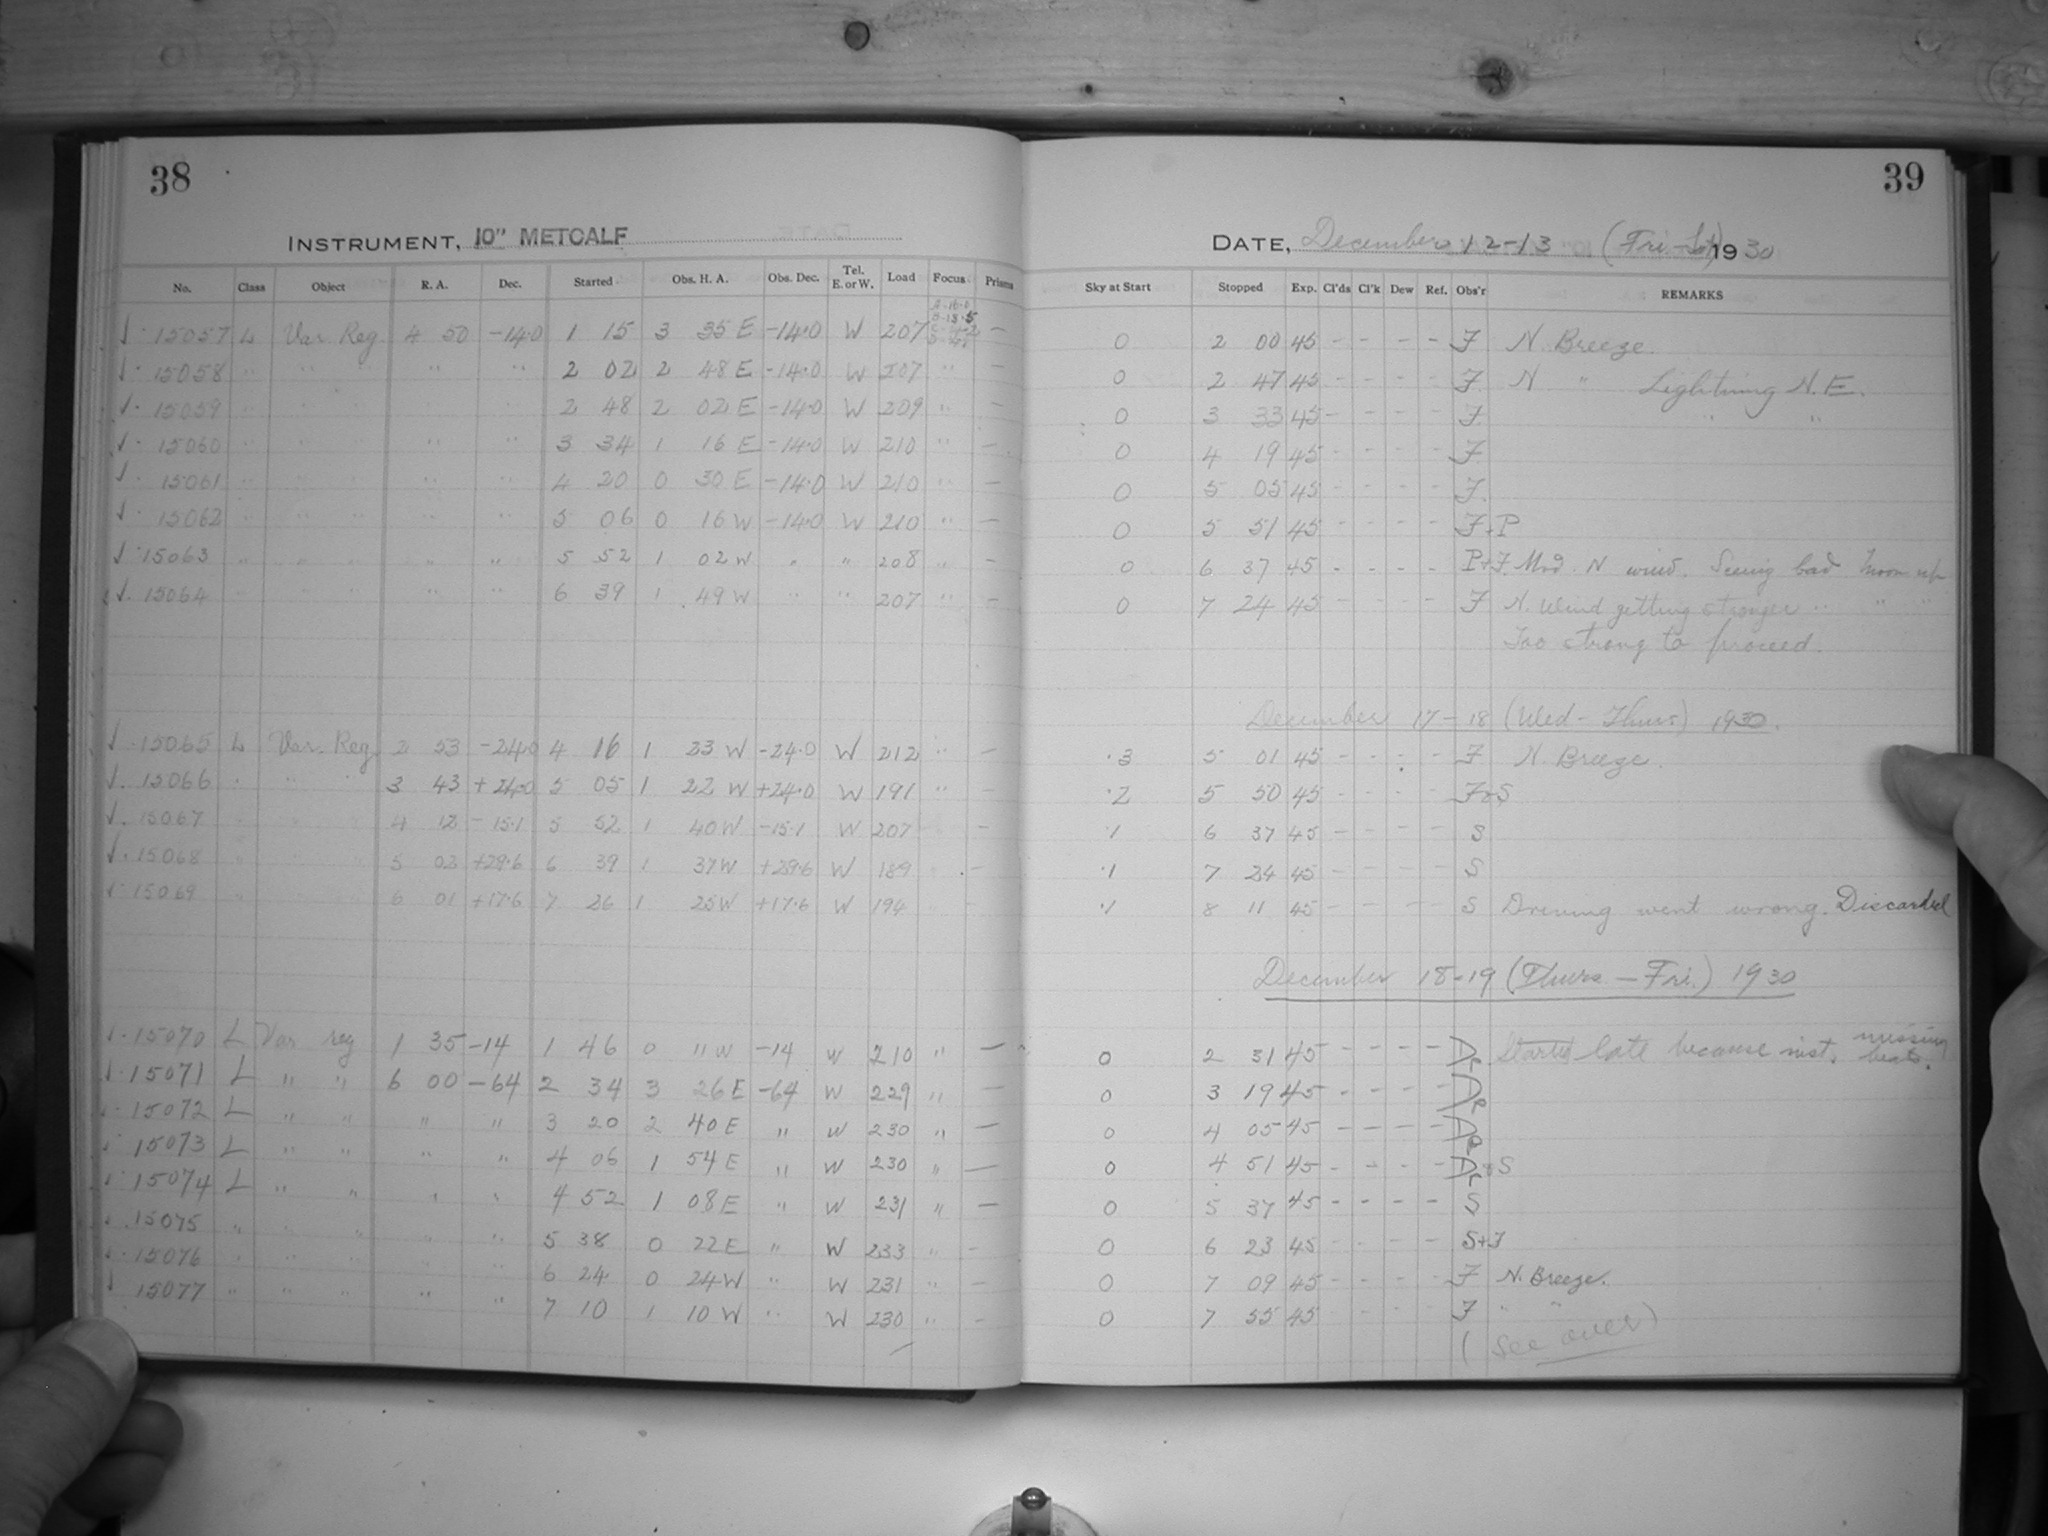 38
INSTRUMENT, 10" METCALF
No. Class Object R. A. Dec. Started Obs. H. A. Obs. Dec. Tel. E. or W. Load Focus Prisms
15057 L Var. Reg 4 50 -14.0 1 15 3 35 E -14.0 W 207 —
15058 " " " " " 2 02 2 48 E -14.0 W 207 " —
15059 " " " " " 2 48 2 02 E -14.0 W 209 " —
15060 " " " " " 3 34 1 16 E -14.0 W 210 " —
15061 " " " " " 4 20 0 30 E -14.0 W 210 " —
15062 " " " " " 5 06 0 16 W -14.0 W 210 " —
15063 " " " " " 5 52 1 02 W " " 208 " —
15064 " " " " " 6 39 1 49 W " " 207 " —
15065 L Var. Reg 2 53 -24.0 4 16 1 23 W -24.0 W 212 " —
15066 " " " 3 43 +24.0 5 05 1 22 W +24.0 W 191 " —
15067 " " " 4 12 -15.1 5 52 1 40 W -15.1 W 207 —
15068 " " " 5 02 +29.6 6 39 1 37 W +29.6 W 189 —
15069 " " " 6 01 +17.6 7 26 1 25 W +17.6 W 194 —
15070 L Var reg 1 35 -14 1 46 0 11 W -14 W 210 " —
15071 L " " 6 00 -64 2 34 3 26 E -64 W 229 " —
15072 L " " " " 3 20 2 40 E " W 230 " —
15073 L " " " " 4 06 1 54 E " W 230 " —
15074 L " " " " 4 52 1 08 E " W 231 " —
15075 " " " " " 5 38 0 22 E " W 233 " —
15076 " " " " " 6 24 0 24 W " W 231 " —
15077 " " " " " 7 10 1 10 W " W 230 " —
39
DATE, December 12-13 (Fri-Sat) 1930
Sky at Start Stopped Exp. Cl'ds Cl'k Dew Ref. Obs'r REMARKS
0 2 00 45 - - - - F N. Breeze.
0 2 47 45 - - - - F N " Lightning N.E.
0 3 33 45 - - - - F. " "
0 4 19 45 - - - - F.
0 5 05 45 - - - - F.
0 5 51 45 - - - - F+P
0 6 37 45 - - - - P+F. Mod. N wind. Seeing bad Moon up
0 7 24 45 - - - - F N. Wind getting stronger " " "
Too strong to proceed.
December 17-18 (Wed-Thurs) 1930.
.3 5 01 45 - - - - F N. Breeze.
.2 5 50 45 - - - - F+S
.1 6 37 45 - - - - S
.1 7 24 45 - - - - S
.1 8 11 45 - - - - S Driving went wrong. Discarded
December 18-19 (Thurs-Fri.) 1930
0 2 31 45 - - - - Started late because inst. missing beats.
0 3 19 45 - - - -
0 4 05 45 - - - -
0 4 51 45 - - - - S
0 5 37 45 - - - - S
0 6 23 45 - - - - S+F
0 7 09 45 - - - - F N. Breeze.
0 7 55 45 - - - - F " "
(See over)